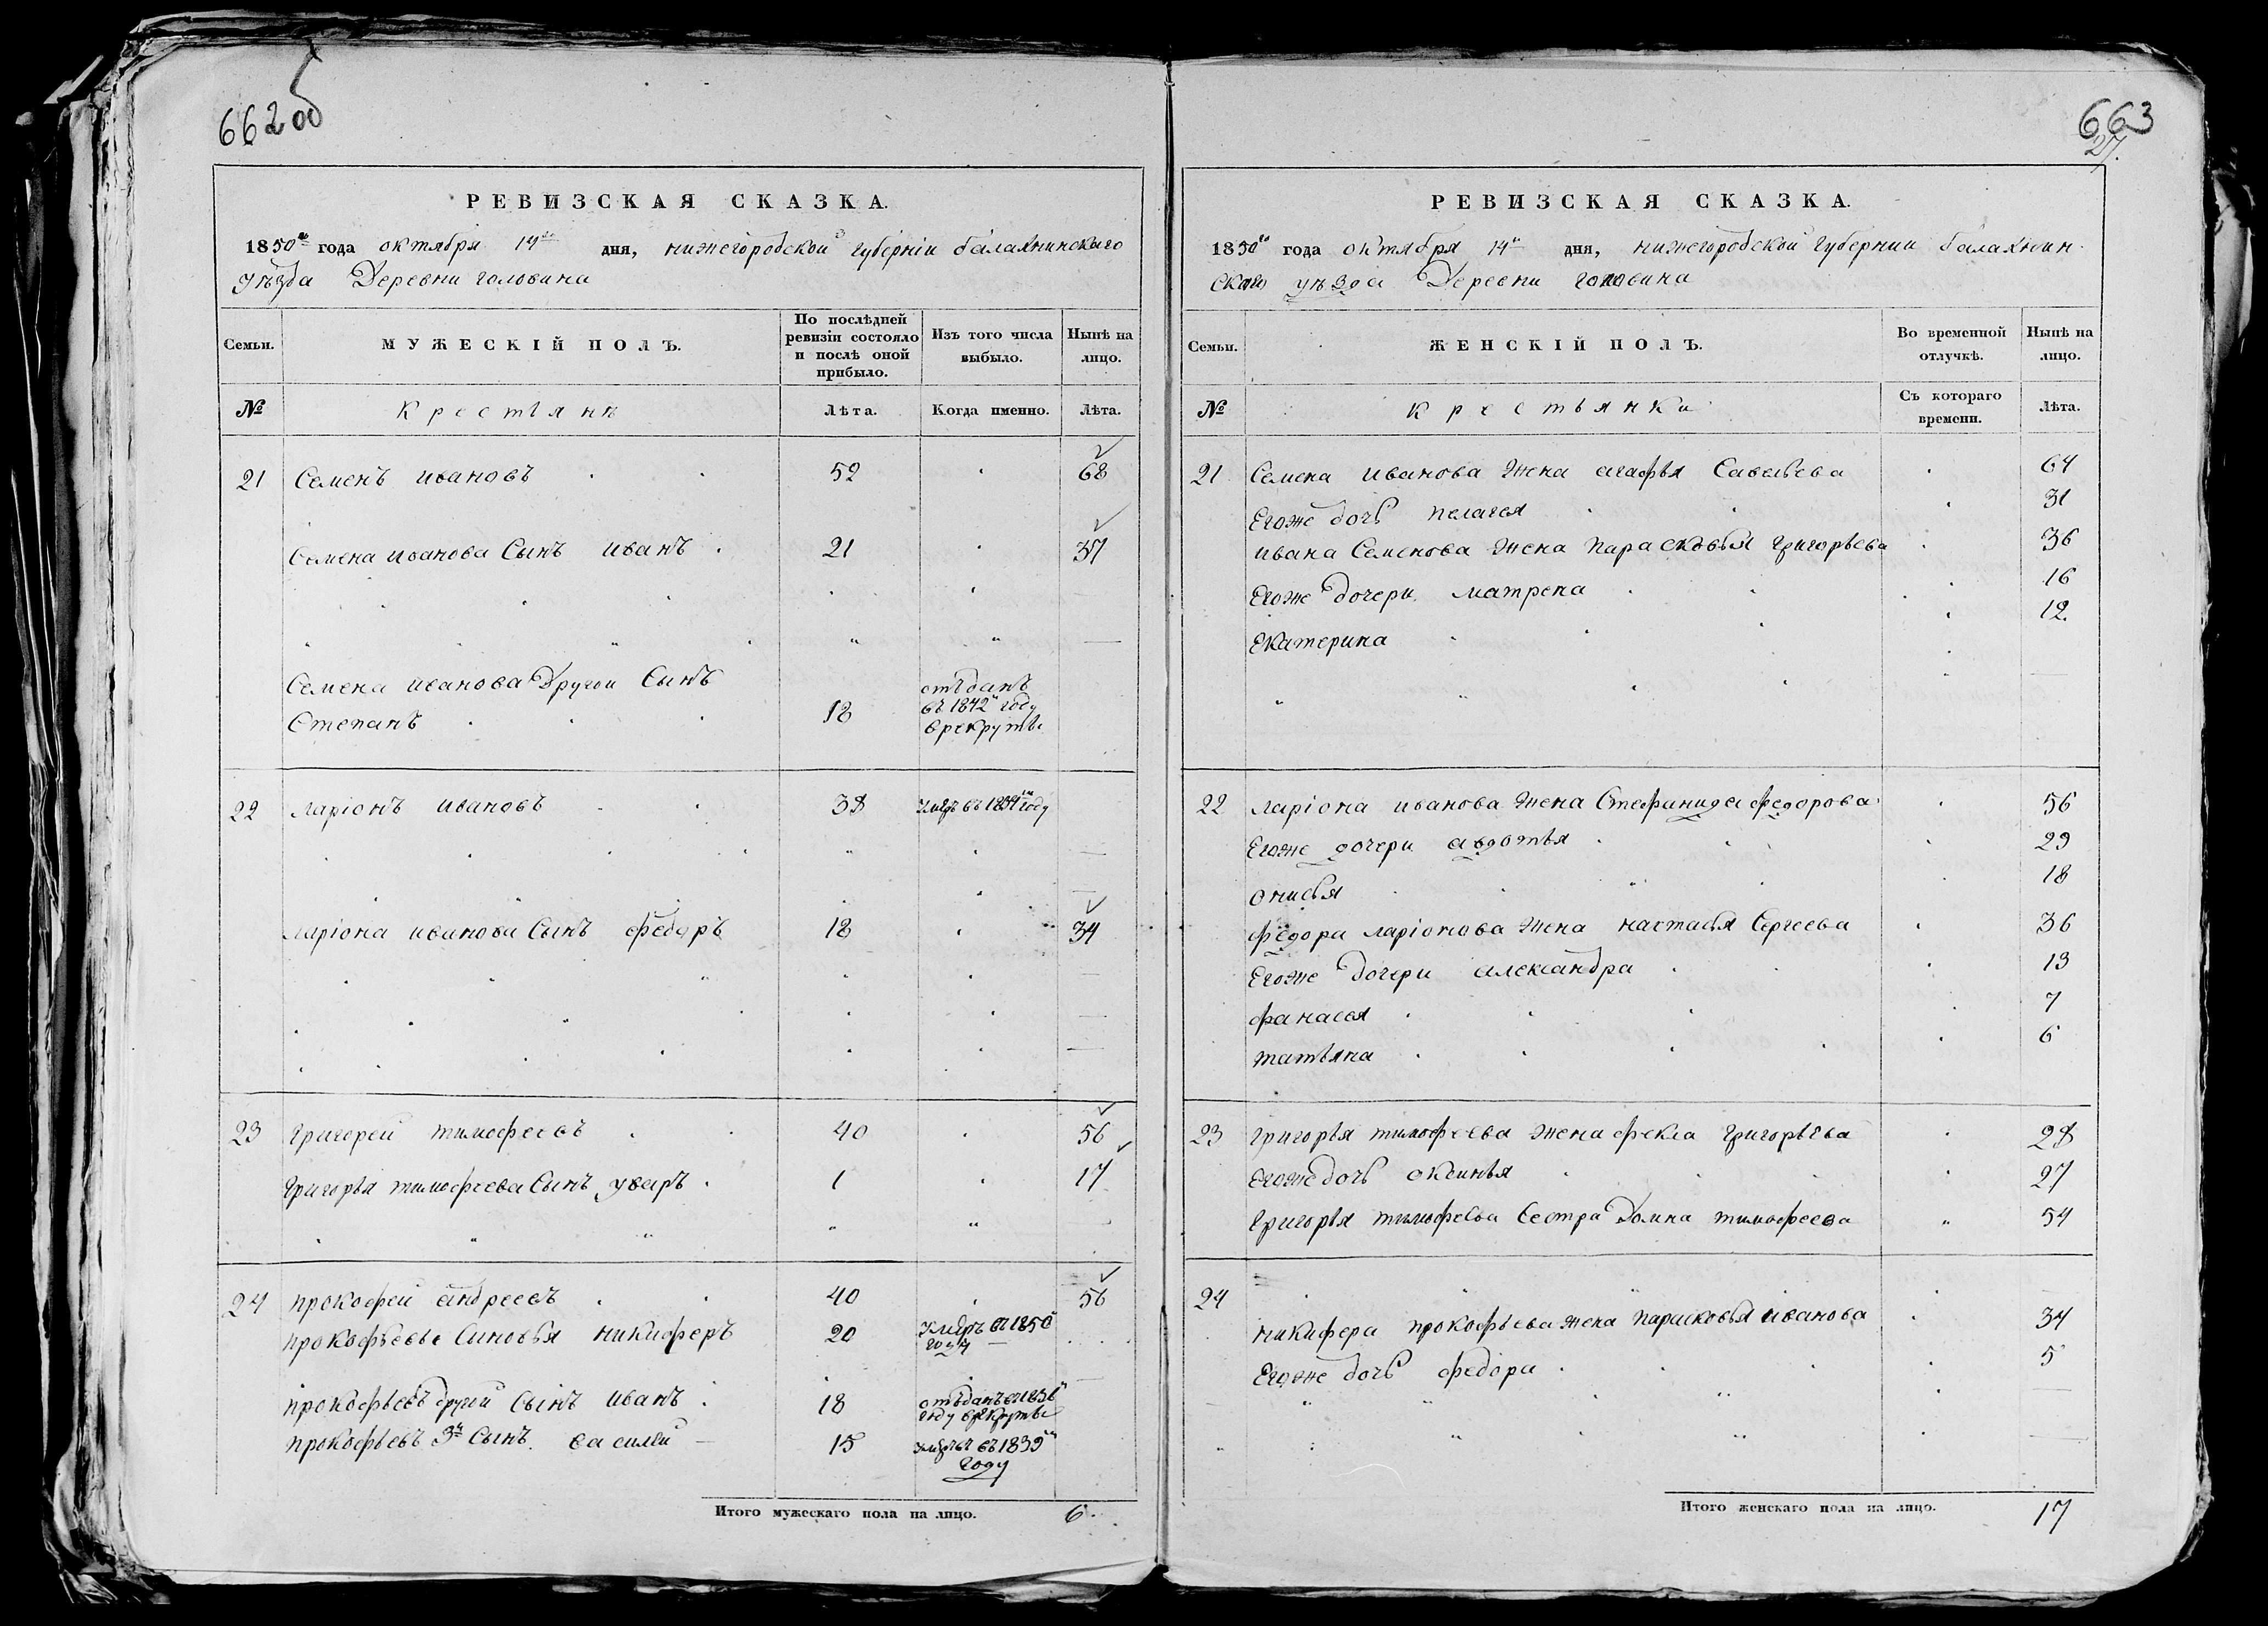 662 об
РЕВИЗСКАЯ СКАЗКА.
1850го года октября 14го дня, нижегородской губерніи балахнинскаго
уѣзда Деревни головина
Семьи. МУЖЕСКІЙ ПОЛЪ. По послѣдней ревизіи состояло и послѣ оной прибыло. Изъ того числа выбыло. Нынѣ на лицо.
№ Крестьянѣ Лѣта. Когда именно. Лѣта.
21 Семенъ ивановъ 52 68
Семена иванова Сынъ иванъ 21 37
Семена иванова Другой Сынъ
Степанъ 18 отъданъ въ 1842м году врекруты
22 ларіонъ ивановъ 38 умеръ въ 1834м году
ларіона иванова Сынъ федоръ 18 34
23 григорей тимофеевъ 40 56
григорья тимофеева Сынъ уваръ 1 17
24 прокофей андреевъ 40 56
прокофьевы Синовья никиферъ 20 умеръ въ 1850 году
прокофьевъ другой Сынъ иванъ 18 отъданъ въ 1836м году врекруты
прокофьевъ 3й Сынъ василей 15 умеръ въ 1839м году
Итого мужескаго пола на лицо. 6
663
27.
РЕВИЗСКАЯ СКАЗКА.
1850го года октября 14го дня, нижегородской губернии балахнин
скаго уѣзда Деревни головина
Семьи. ЖЕНСКІЙ ПОЛЪ. Во временной отлучкѣ. Нынѣ на лицо.
№ крестьянки Съ котораго времени. Лѣта.
21 Семена иванова жена агафья Савельева 64
Егоже дочь пелагея 31
ивана Семенова жена парасковья григорьева 36
Егоже дочери матрена 16
Екатерина 12
22 ларіона иванова жена Стефанида федорова 56
Егоже дочери авдотья 29
онисья 18
федора ларіонова жена настасья Сергеева 36
Егоже дочери александра 13
фанасья 7
татьяна 6
23 григорья тимофеева жена фекла григорьева 28
Егоже дочь оксинья 27
григорья тимофеева Сестра Домна тимофеева 54
24
никифера прокофьева жена парасковья иванова 34
Егоже дочь федора 5
Итого женскаго пола на лицо. 17